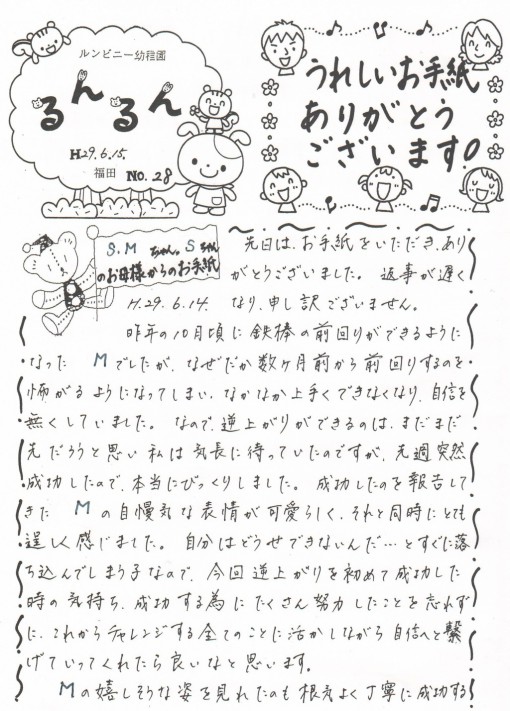 ルンビニー幼稚園
るんるん
H29.6.15.
福田 No.28
うれしいお手紙
ありがとう
ございます!
S.Mちゃん。Sちゃん
のお母様からのお手紙
H.29.6.14.
先日は、お手紙をいただき、あり
がとうございました。 返事が遅く
なり、申し訳ございません。
昨年の10月頃に鉄棒の前回りができるように
なった Mでしたが、なぜだか数ヶ月前から前回りするのを
怖がるようになってしまい、なかなか上手くできなくなり、自信を
無くしていました。 なので、逆上がりができるのは、まだまだ
先だろうと思い私は気長に待っていたのですが、先週突然
成功したので、本当にびっくりしました。 成功したのを報告して
きた Mの自慢気な表情が可愛らしく、それと同時にとても
逞しく感じました。 自分はどうせできないんだ…とすぐに落
ち込んでしまう子なので、今回逆上がりを初めて成功した
時の気持ち、成功する為にたくさん努力したことを忘れず
に、これからチャレンジする全てのことに活かしながら自信へと繋
げていってくれたら良いなと思います。
Mの嬉しそうな姿を見れたのも根気よく丁寧に成功する